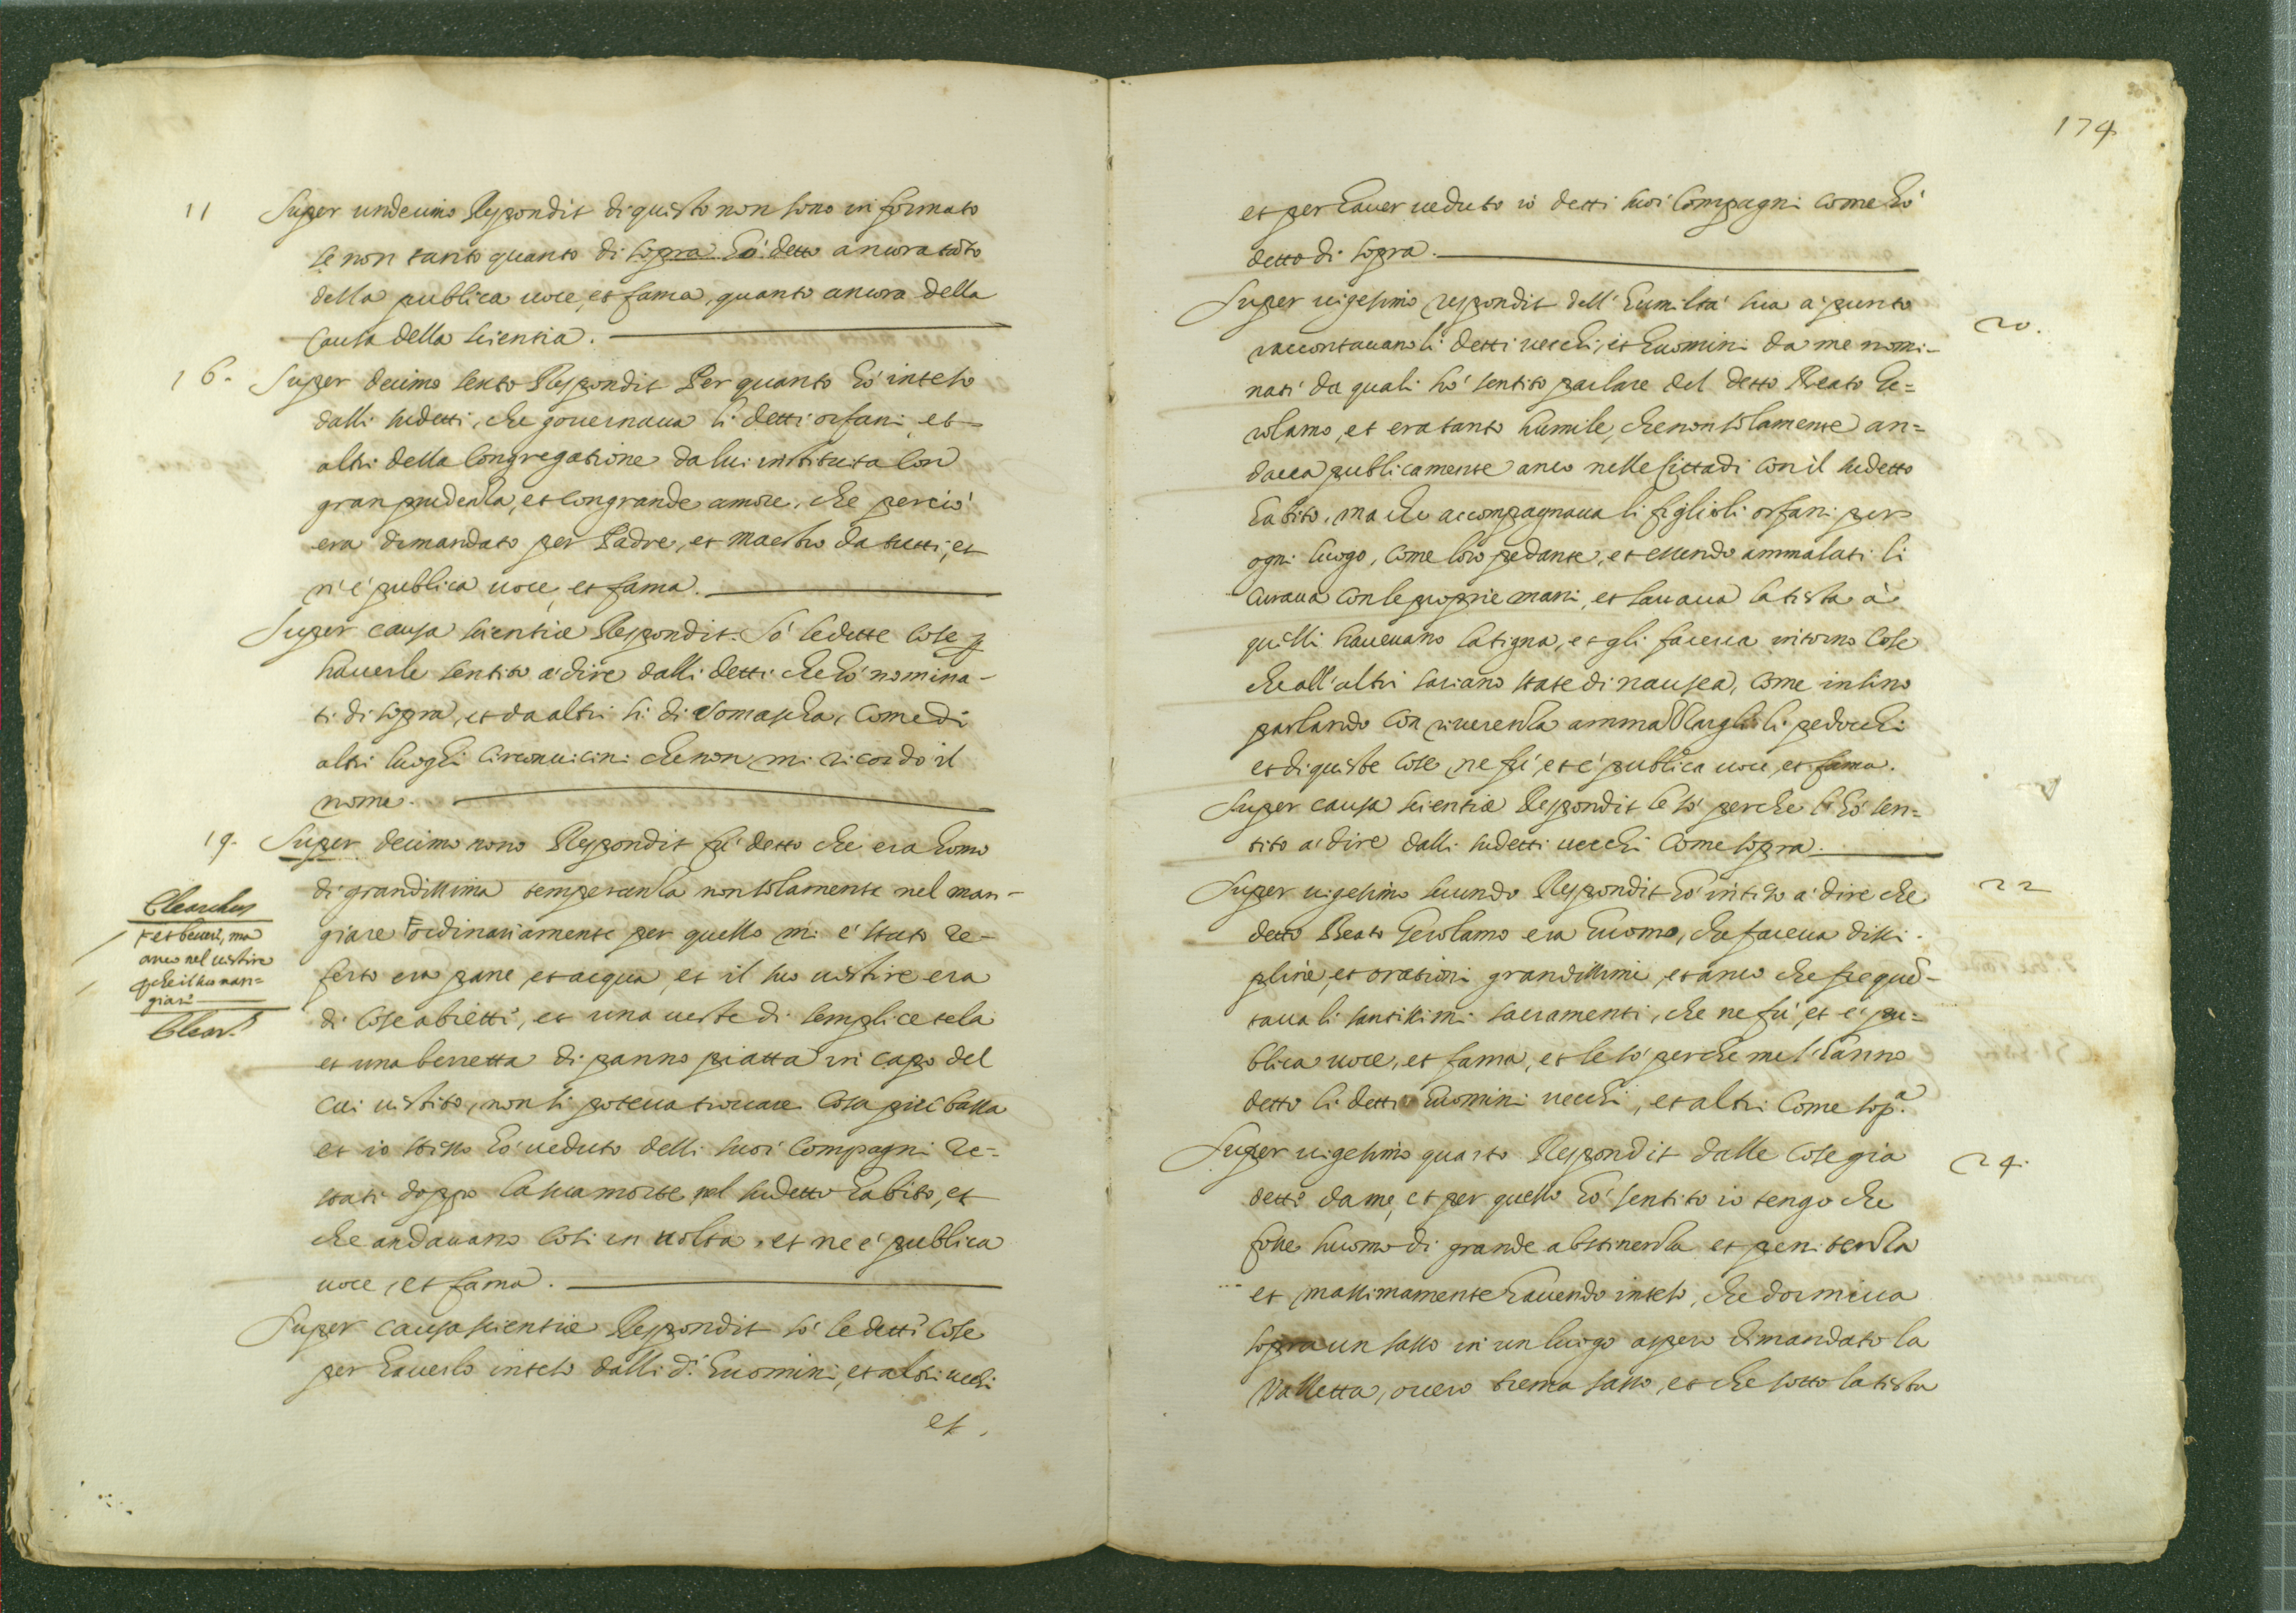 11 Super undecimo Respondit di questo non sono informato
se non tanto quanto di sopra hò detto ancora tāto
della publica uoce, et fama, quanto ancora della
causa della scientia.
16. Super decimo sexto Respondit Per quanto hò inteso
dalli sudetti, che gouernaua li detti orfani, et
altri della Congregatione da lui instituita con
gran prudenza, et con grande amore, che perciò
era dimandato per Padre, et maestro da tutti, et
n'è publica uoce, et fama.
Super causa scientiæ Respondit. Sò le dette cose
hauerle sentito à dire dalli detti che hò nomina-
ti di sopra, et da altri sì di Somascha, come di
altri luoghi circonuicini che non mi ricordo il
nome.
19. Super decimo nono Respondit fù detto che era homo
di grandissima temperanza non solamente nel man-
giare ordinariamente per quello mi è stato re-
ferto era pane, et acqua, et il suo uestire era
di cose abiette, et una ueste di semplice tela
et una berretta di panno piatta in capo del
cui uestito, non si poteua trouare cosa più bassa
et io stesso hò ueduto delli suoi Compagni re-
stati doppo la sua morte nel sudetto habito, et
che andauano così in uolta, et ne è publica
uoce, et fama.
Super causa scientiæ Respondit sò le dette cose
per hauerlo inteso dalli d.i huomini, et altri uechi
et
et beuere, ma
anco nel uestire
che il suo man=
giare
174
et per hauer ueduto io detti suoi Compagni come hò
detto di sopra.
Super uigesimo respondit dell'humiltà sua à punto
20.
raccontauano li detti uecchi, et huomini da me nomi-
nati da quali hò sentito parlare del detto Beato Ge=
rolamo, et era tanto humile, che non solamente an=
daua publicamente anco nelle Cittadi con il sudetto
habito, ma che accompagnaua li figlioli orfani per
ogni luogo, come loro pedante, et essendo ammalati li
curaua con le proprie mani, et lauaua la testa à
quelli haueuano la tigna, et gli faceua intorno cose
che all'altri sariano state di nausea, come insino
parlando con riuerenza ammazzargli li pedocchi
et di queste cose, ne fù, et è publica uoce, et fama.
Super causa scientiæ Respondit le sò perche l'hò sen=
tito à dire dalli sudetti uecchi come sopra.
Super uigesimo secundo Respondit hò inteso à dire che
22
detto Beato Gerolamo era huomo, che faceua disci-
pline, et orationi grandissime, et anco che frequē-
taua li santissimi sacramenti, che ne fù, et è pu=
blica uoce, et fama, et le sò perche me l'hanno
detto li detti huomini uecchi, et altri come sop.a
Super uigesimo quarto Respondit dalle cose già
24.
dette da me, et per quello hò sentito io tengo che
fosse huomo di grande abstinenza et penitenza
et massimamente hauendo inteso, che dormiua
sopra un sasso in un luogo aspero dimandato la
Valletta, ouero trema sasso, et che sotto la testa